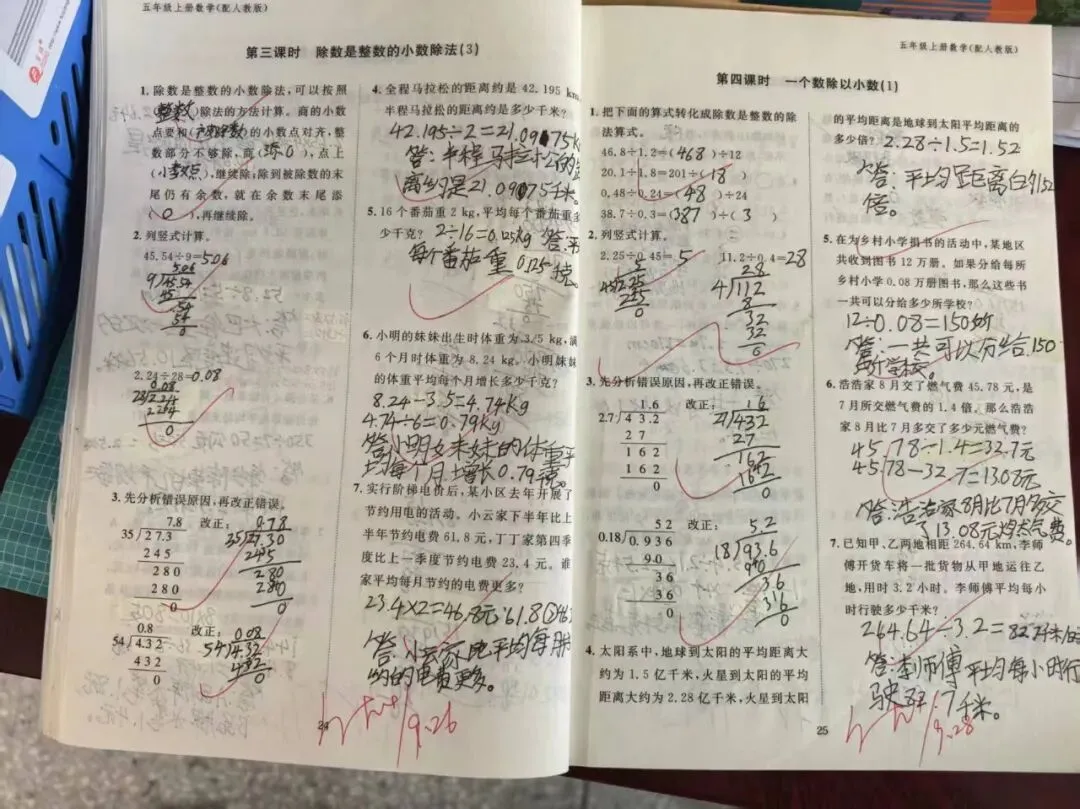 五年级上册数学(配人教版)
第三课时 除数是整数的小数除法(3)
1. 除数是整数的小数除法,可以按照
(整数)除法的方法计算。商的小数
点要和(被除数)的小数点对齐,整
数部分不够除,商(添0),点上
(小数点),继续除;除到被除数的末
尾仍有余数,就在余数末尾添
(0),再继续除。
2. 列竖式计算。
45.54÷9=5.06
5.06
9 45.54
45
54
54
0
2.24÷28=0.08
0.08
28 2.24
224
0
3. 先分析错误原因,再改正错误。
7.8 改正: 0.78
35 27.3 35 27.30
245 245
280 280
280 280
0 0
0.8 改正: 0.08
54 4.32 54 4.32
432 432
0 0
4. 全程马拉松的距离约是 42.195 km,
半程马拉松的距离约是多少千米?
42.195÷2=21.0975k
答:半程马拉松的距
离约是21.0975千米。
5. 16 个番茄重 2 kg,平均每个番茄重多
少千克? 2÷16=0.125kg 答:平
每个番茄重0.125千克。
6. 小明的妹妹出生时体重为 3.5 kg,满
6 个月时体重为 8.24 kg。小明妹妹
的体重平均每个月增长多少千克?
8.24-3.5=4.74kg
4.74÷6=0.79kg
答:小明妹妹的体重平
均每个月增长0.79千克。
7. 实行阶梯电价后,某小区去年开展了
节约用电的活动。小云家下半年比上
半年节约电费 61.8 元,丁丁家第四季
度比上一季度节约电费 23.4 元。谁
家平均每月节约的电费更多?
23.4×2=46.8元 61.8>46
答:小云家 平均每月
的电费更多。
24
9.26
五年级上册数学(配人教版)
第四课时 一个数除以小数(1)
1. 把下面的算式转化成除数是整数的除
法算式。
46.8÷1.2=(468)÷12
20.1÷1.8=201÷(18)
0.48÷0.24=(48)÷24
38.7÷0.3=(387)÷(3)
2. 列竖式计算。
2.25÷0.45=5 11.2÷0.4=28
5 28
45 225 4 112
225 8
0 32
32
0
3. 先分析错误原因,再改正错误。
1.6 改正: 16
2.7 43.2 27 432
27 27
162 162
162 162
0 0
52 改正: 5.2
0.18 0.936 18 93.6
90 90
36 36
36 36
0 0
4. 太阳系中,地球到太阳的平均距离大
约为 1.5 亿千米,火星到太阳的平均
距离大约为 2.28 亿千米,火星到太阳
的平均距离是地球到太阳平均距离的
多少倍? 2.28÷1.5=1.52
答:平均距离的1.52
倍。
5. 在为乡村小学捐书的活动中,某地区
共收到图书 12 万册。如果分给每所
乡村小学 0.08 万册图书,那么这些书
一共可以分给多少所学校?
12÷0.08=150所
答:一共可以分给150
所学校。
6. 浩浩家 8 月交了燃气费 45.78 元,是
7 月所交燃气费的 1.4 倍。那么浩浩
家 8 月比 7 月多交了多少元燃气费?
45.78÷1.4=32.7元
45.78-32.7=13.08元
答:浩浩家8月比7月多交
了13.08元燃气费。
7. 已知甲、乙两地相距 264.64 km,李师
傅开货车将一批货物从甲地运往乙
地,用时 3.2 小时。李师傅平均每小
时行驶多少千米?
264.64÷3.2=82.7千米/时
答:李师傅平均每小时行
驶 .7千米。
25
9.28